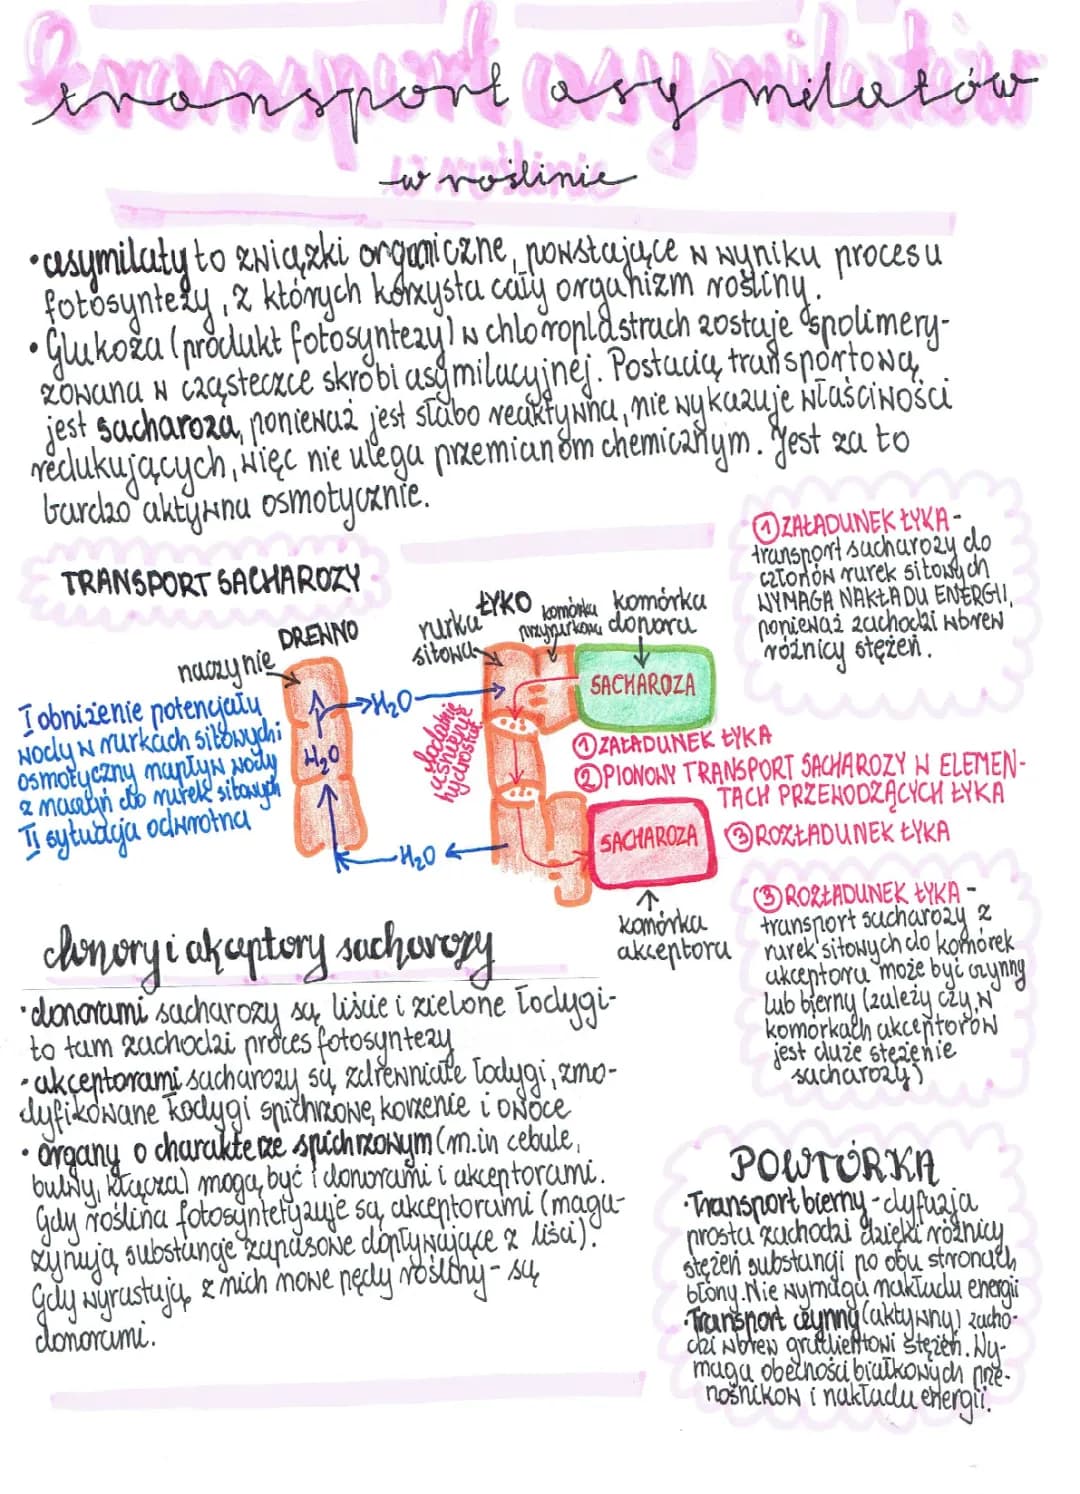 transport asymilatów
w roślinie
•asymilaty to związki organiczne, powstające w wyniku procesu
fotosyntezy, z których korzysta cały organizm rośliny.
•Glukoza (produkt fotosyntezy) w chloroplastrach zostaje spolimery-
zowana w cząsteczce skrobi asymilacyjnej. Postacią transportową
jest sacharoza, ponieważ jest słabo reaktywna, nie wykazuje właściwości
redukujących, więc nie ulega przemianom chemicznym. Jest za to
bardzo aktywna osmotycznie.
TRANSPORT SACHAROZY
① ZAŁADUNEK ŁYKA -
transport sacharozy do
członów rurek sitowych
WYMAGA NAKŁADU ENERGII,
ponieważ zachodzi wbrew
różnicy stężeń.
DREWNO
naczynie
ŁYKO
rurka
sitowa
komórka
przyrurkowa
komórka
donora
SACHAROZA
H₂O
H₂O
dodatnie
ciśnienie
hydrostat.
I obniżenie potencjału
wody w rurkach sitowych i
osmotyczny napływ wody
z naczyń do rurek sitowych
II sytuacja odwrotna
① ZAŁADUNEK ŁYKA
② PIONOWY TRANSPORT SACHAROZY W ELEMEN-
TACH PRZEWODZĄCYCH ŁYKA
SACHAROZA
③ ROZŁADUNEK ŁYKA
H₂O
komórka
akceptora
③ ROZŁADUNEK ŁYKA -
transport sacharozy z
rurek sitowych do komórek
akceptora może być czynny
lub bierny (zależy czy w
komorkach akceptorów
jest duże stężenie
sacharozy)
donory i akceptory sacharozy
•donorami sacharozy są liście i zielone łodygi-
to tam zachodzi proces fotosyntezy
•akceptorami sacharozy są zdrewniałe łodygi, zmo-
dyfikowane łodygi spichrzowe, korzenie i owoce
•organy o charakterze spichrzowym (m.in cebule,
bulwy, kłącza) mogą być i donorami i akceptorami.
Gdy roślina fotosyntetyzuje są akceptorami (maga-
zynują substancje zapasowe dopływające z liści).
Gdy wyrastują z nich nowe pędy rośliny - są
donorami.
POWTÓRKA
•Transport bierny - dyfuzja
prosta zachodzi dzięki różnicy
stężeń substancji po obu stronach
błony. Nie wymaga nakładu energii
•Transport czynny (aktywny) zacho-
dzi wbrew gradientowi stężeń. Wy-
maga obecności białkowych prze-
nośników i nakładu energii.